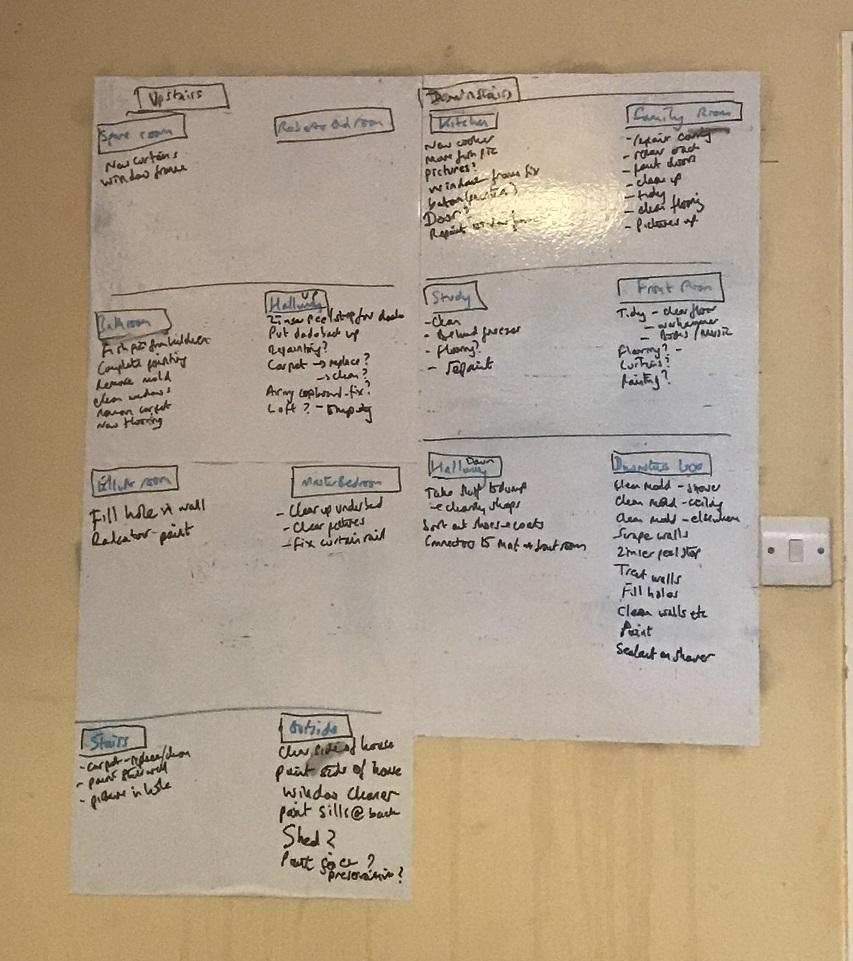 Upstairs
Spare room
New curtains
window frame
Bedroom
Bathroom
Complete painting
Remove mold
clean windows
Remove carpet
New flooring
Hallway UP
Zinser peel stop for dado
Put dado back up
Repainting?
Carpet → replace?
→ clean?
Army cupboard - fix?
Loft? - Empty
room
Fill hole in wall
Radiator - paint
Master Bedroom
- Clear up under bed
- Clear pictures
- Fix curtain rail
Stairs
- carpet - replace/clean
- paint stairwell
- picture in hole
Outside
Clear side of house
paint side of house
Window cleaner
paint sills @ back
Shed?
Paint ?
preservative?
Downstairs
Kitchen
New cooker
Move fish pic
pictures?
Window frame fix
Door?
Repaint window frame
Family Room
- repair
- paint doors
- clean up
- tidy
- clean flooring
- Pictures up
Study
- Clean
- Behind freezer
- Flooring?
- repaint
Front Room
Tidy - clear floor
- warhammer
- Books / MUSIC
Flooring? -
Curtains?
Painting?
Hallway Down
Take stuff to dump
→ charity shops
Sort out shoes → coats
Connectors to front room
Downstairs Loo
Clean mold - shower
Clean mold - ceiling
Clean mold - elsewhere
Scrape walls
Zinser peel stop
Treat walls
Fill holes
Clean walls etc
Paint
Sealant on shower